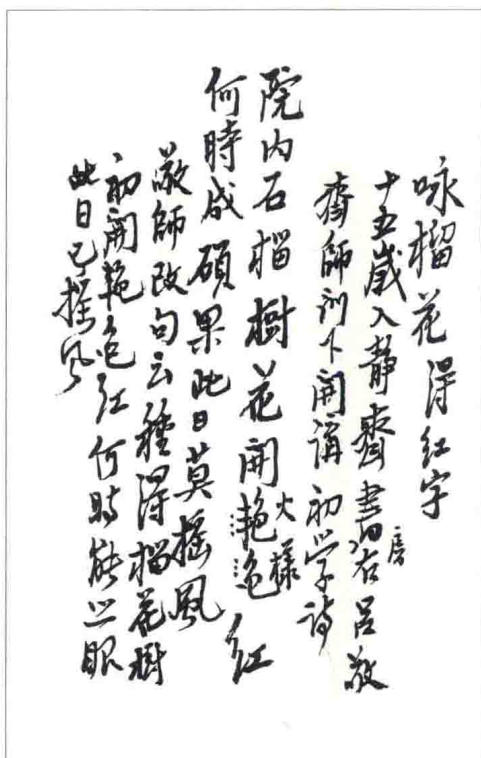 咏榴花得红字
十五岁入静斋书房在吕敬
斋師訓下開講初学诗
院内石榴樹花開艳色火樣红
何時成碩果此日莫摇風
敬師改句云種得榴花樹
初開艳色红何時能照眼
此日已摇风